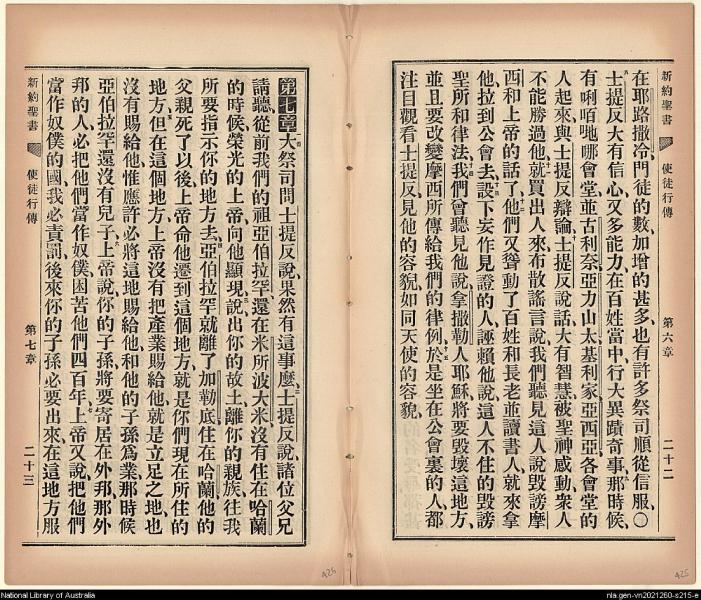 新約聖書 使徒行傳 第六章 二十二
在耶路撒冷門徒的數加增的甚多、也有許多祭司順從信服、〇
士提反大有信心、又多能力、在百姓當中、行大異蹟奇事、那時候、
有唎哂哋哪會堂、並古利奈、亞力山太、基利家、亞西亞各會堂的
人、起來與士提反辯論、士提反說話大有智慧、被聖神感動、衆人
不能勝過他、就買出人來、布散謠言說、我們聽見這人說、毀謗摩
西和上帝的話了、他們又聳動了百姓和長老、並讀書人、就來拿
他、拉到公會去、設下妄作見證的人、誣賴他說、這人不住的毀謗
聖所和律法、我們曾聽見他說、拿撒勒人耶穌、將要毀壞這地方、
並且要改變摩西所傳給我們的律例、於是坐在公會裏的人、都
注目觀看士提反、見他的容貌、如同天使的容貌、
新約聖書 使徒行傳 第七章 二十三
第七章 大祭司問士提反說、果然有這事麼、士提反說、諸位父兄
請聽、從前我們的祖亞伯拉罕、還在米所波大米、沒有住在哈蘭
的時候、榮光的上帝、向他顯現、說出你的故土、離你的親族、往我
所要指示你的地方去、亞伯拉罕就離了加勒底、住在哈蘭、他的
父親死了以後、上帝命他遷到這個地方、就是你們現在所住的
地方、但在這個地方、上帝沒有把產業賜給他、就是立足之地、也
沒有賜給他、惟應許必將這地賜給他、和他的子孫爲業、那時候
亞伯拉罕還沒有兒子、上帝說、你的子孫將要寄居在外邦、那外
邦的人、必把他們當作奴僕、困苦他們四百年、上帝又說、把他們
當作奴僕的國、我必責罰、後來你的子孫必要出來、在這地方服
426
425
National Library of Australia
nla.gen-vn2021260-s215-e